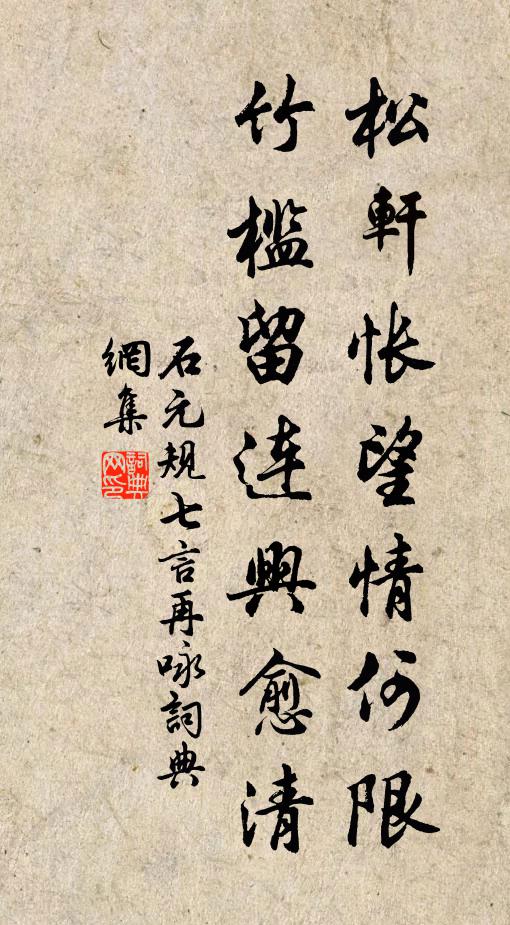 松軒怅望情何限
竹槛留连興愈清
石元規七言再咏詞典
網集
詞典
网印